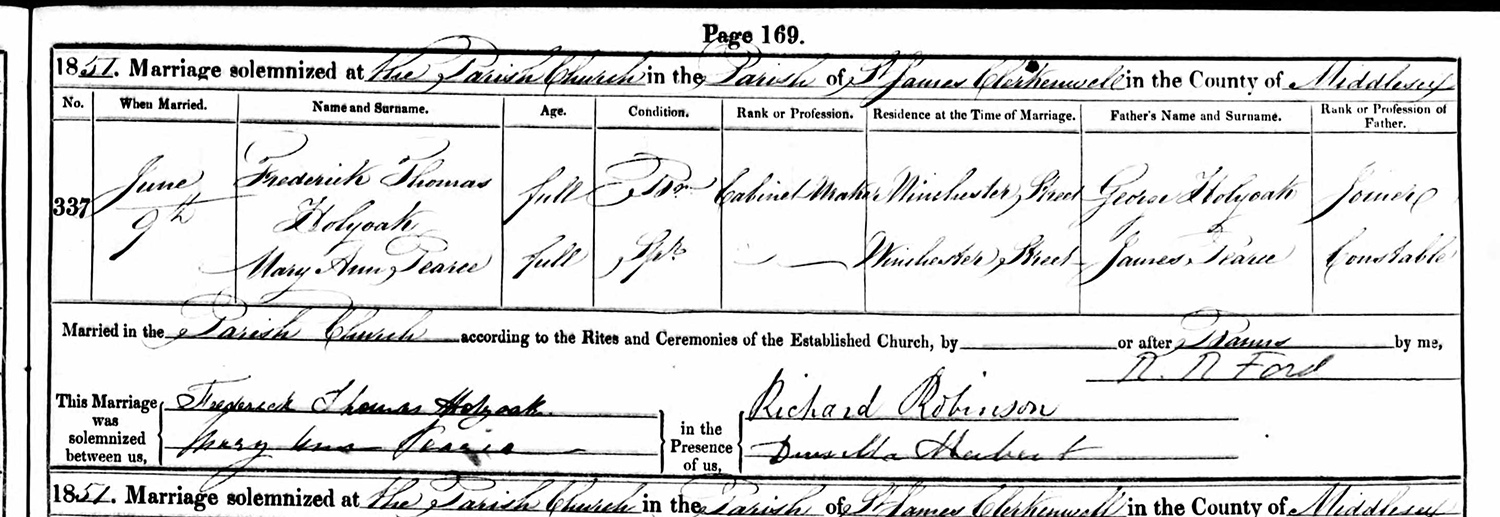 Page 169.
1851. Marriage solemnized at the Parish Church in the Parish of St James Clerkenwell in the County of Middlesex
No. When Married. Name and Surname. Age. Condition. Rank or Profession. Residence at the Time of Marriage. Father's Name and Surname. Rank or Profession of Father.
337 June 9th Frederick Thomas Holyoak full Br. Cabinet Maker Winchester Street George Holyoak Joiner
Mary Ann Pearce full Spr — Winchester Street James Pearce Constable
Married in the Parish Church according to the Rites and Ceremonies of the Established Church, by or after Banns by me,
Ford
This Marriage was solemnized between us, Frederick Thomas Holyoak
Mary Ann Pearce
in the Presence of us, Richard Robinson
Drusilla Herbert
1851. Marriage solemnized at the Parish Church in the Parish of St James Clerkenwell in the County of Middlesex